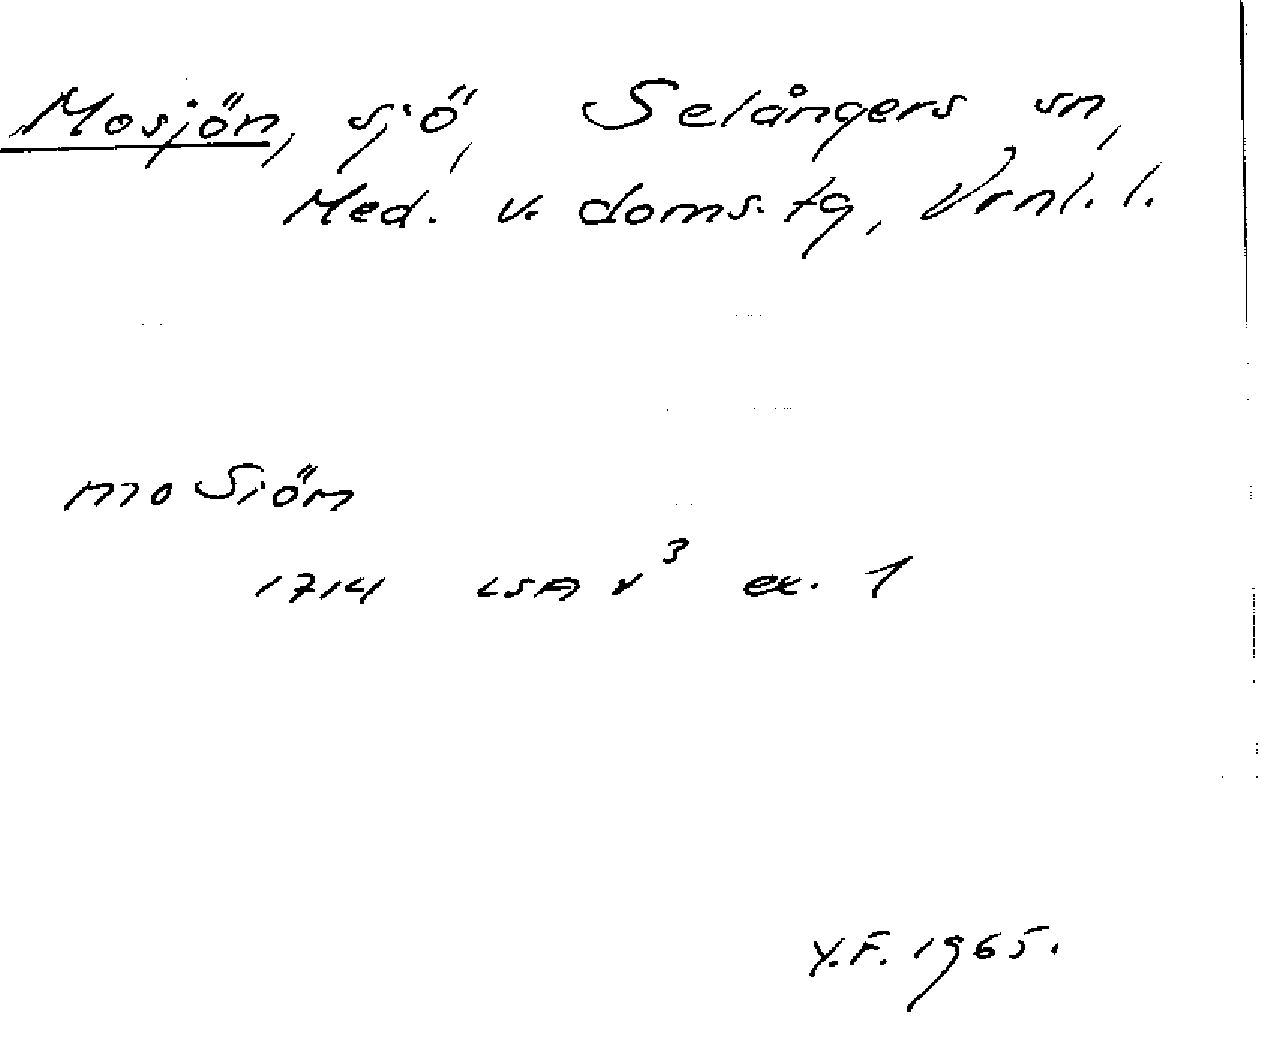 Mosjön, sjö, Selångers sn,
Med. v. doms. tg, Vrnl. l.
mo Siön
1714 LSA V³ ex. 1
Y.F. 1965.